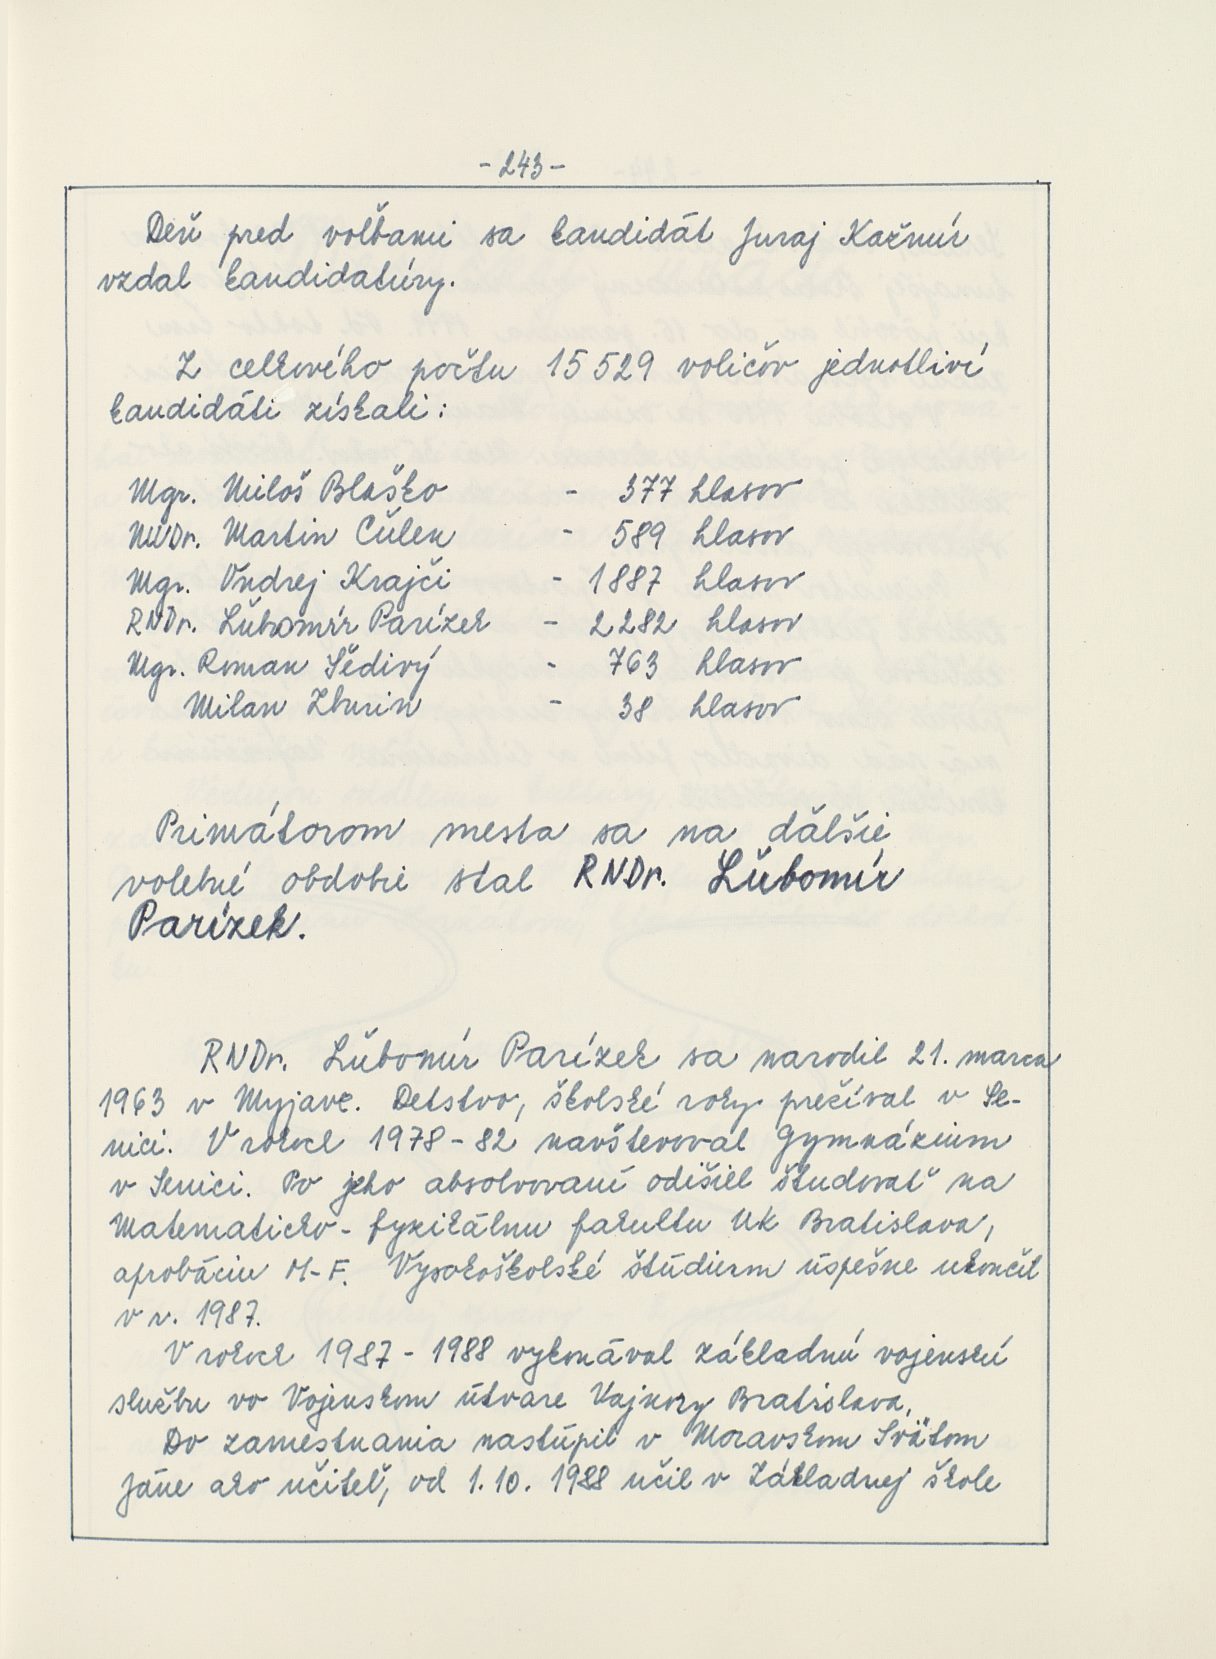 -243-
Deň pred voľbami sa kandidát Juraj Kažmír
vzdal kandidatúry.
Z celkového počtu 15 529 voličov jednotliví
kandidáti získali:
Mgr. Miloš Blaško - 377 hlasov
MUDr. Martin Čulen - 589 hlasov
Mgr. Ondrej Krajči - 1887 hlasov
RNDr. Ľubomír Parízek - 2282 hlasov
Mgr. Roman Šedivý - 763 hlasov
Milan Zburin - 38 hlasov
Primátorom mesta sa na ďalšie
volebné obdobie stal RNDr. Ľubomír
Parízek.
RNDr. Ľubomír Parízek sa narodil 21. marca
1963 v Myjave. Detstvo, školské roky prežíval v Se-
nici. V rokoch 1978-82 navštevoval Gymnázium
v Senici. Po jeho absolvovaní odišiel študovať na
Matematicko-fyzikálnu fakultu UK Bratislava,
aprobáciu M-F. Vysokoškolské štúdium úspešne ukončil
v r. 1987.
V rokoch 1987-1988 vykonával základnú vojenskú
službu vo Vojenskom útvare Vajnory Bratislava.
Do zamestnania nastúpil v Moravskom Svätom
Jáne ako učiteľ, od 1.10. 1988 učil v Základnej škole